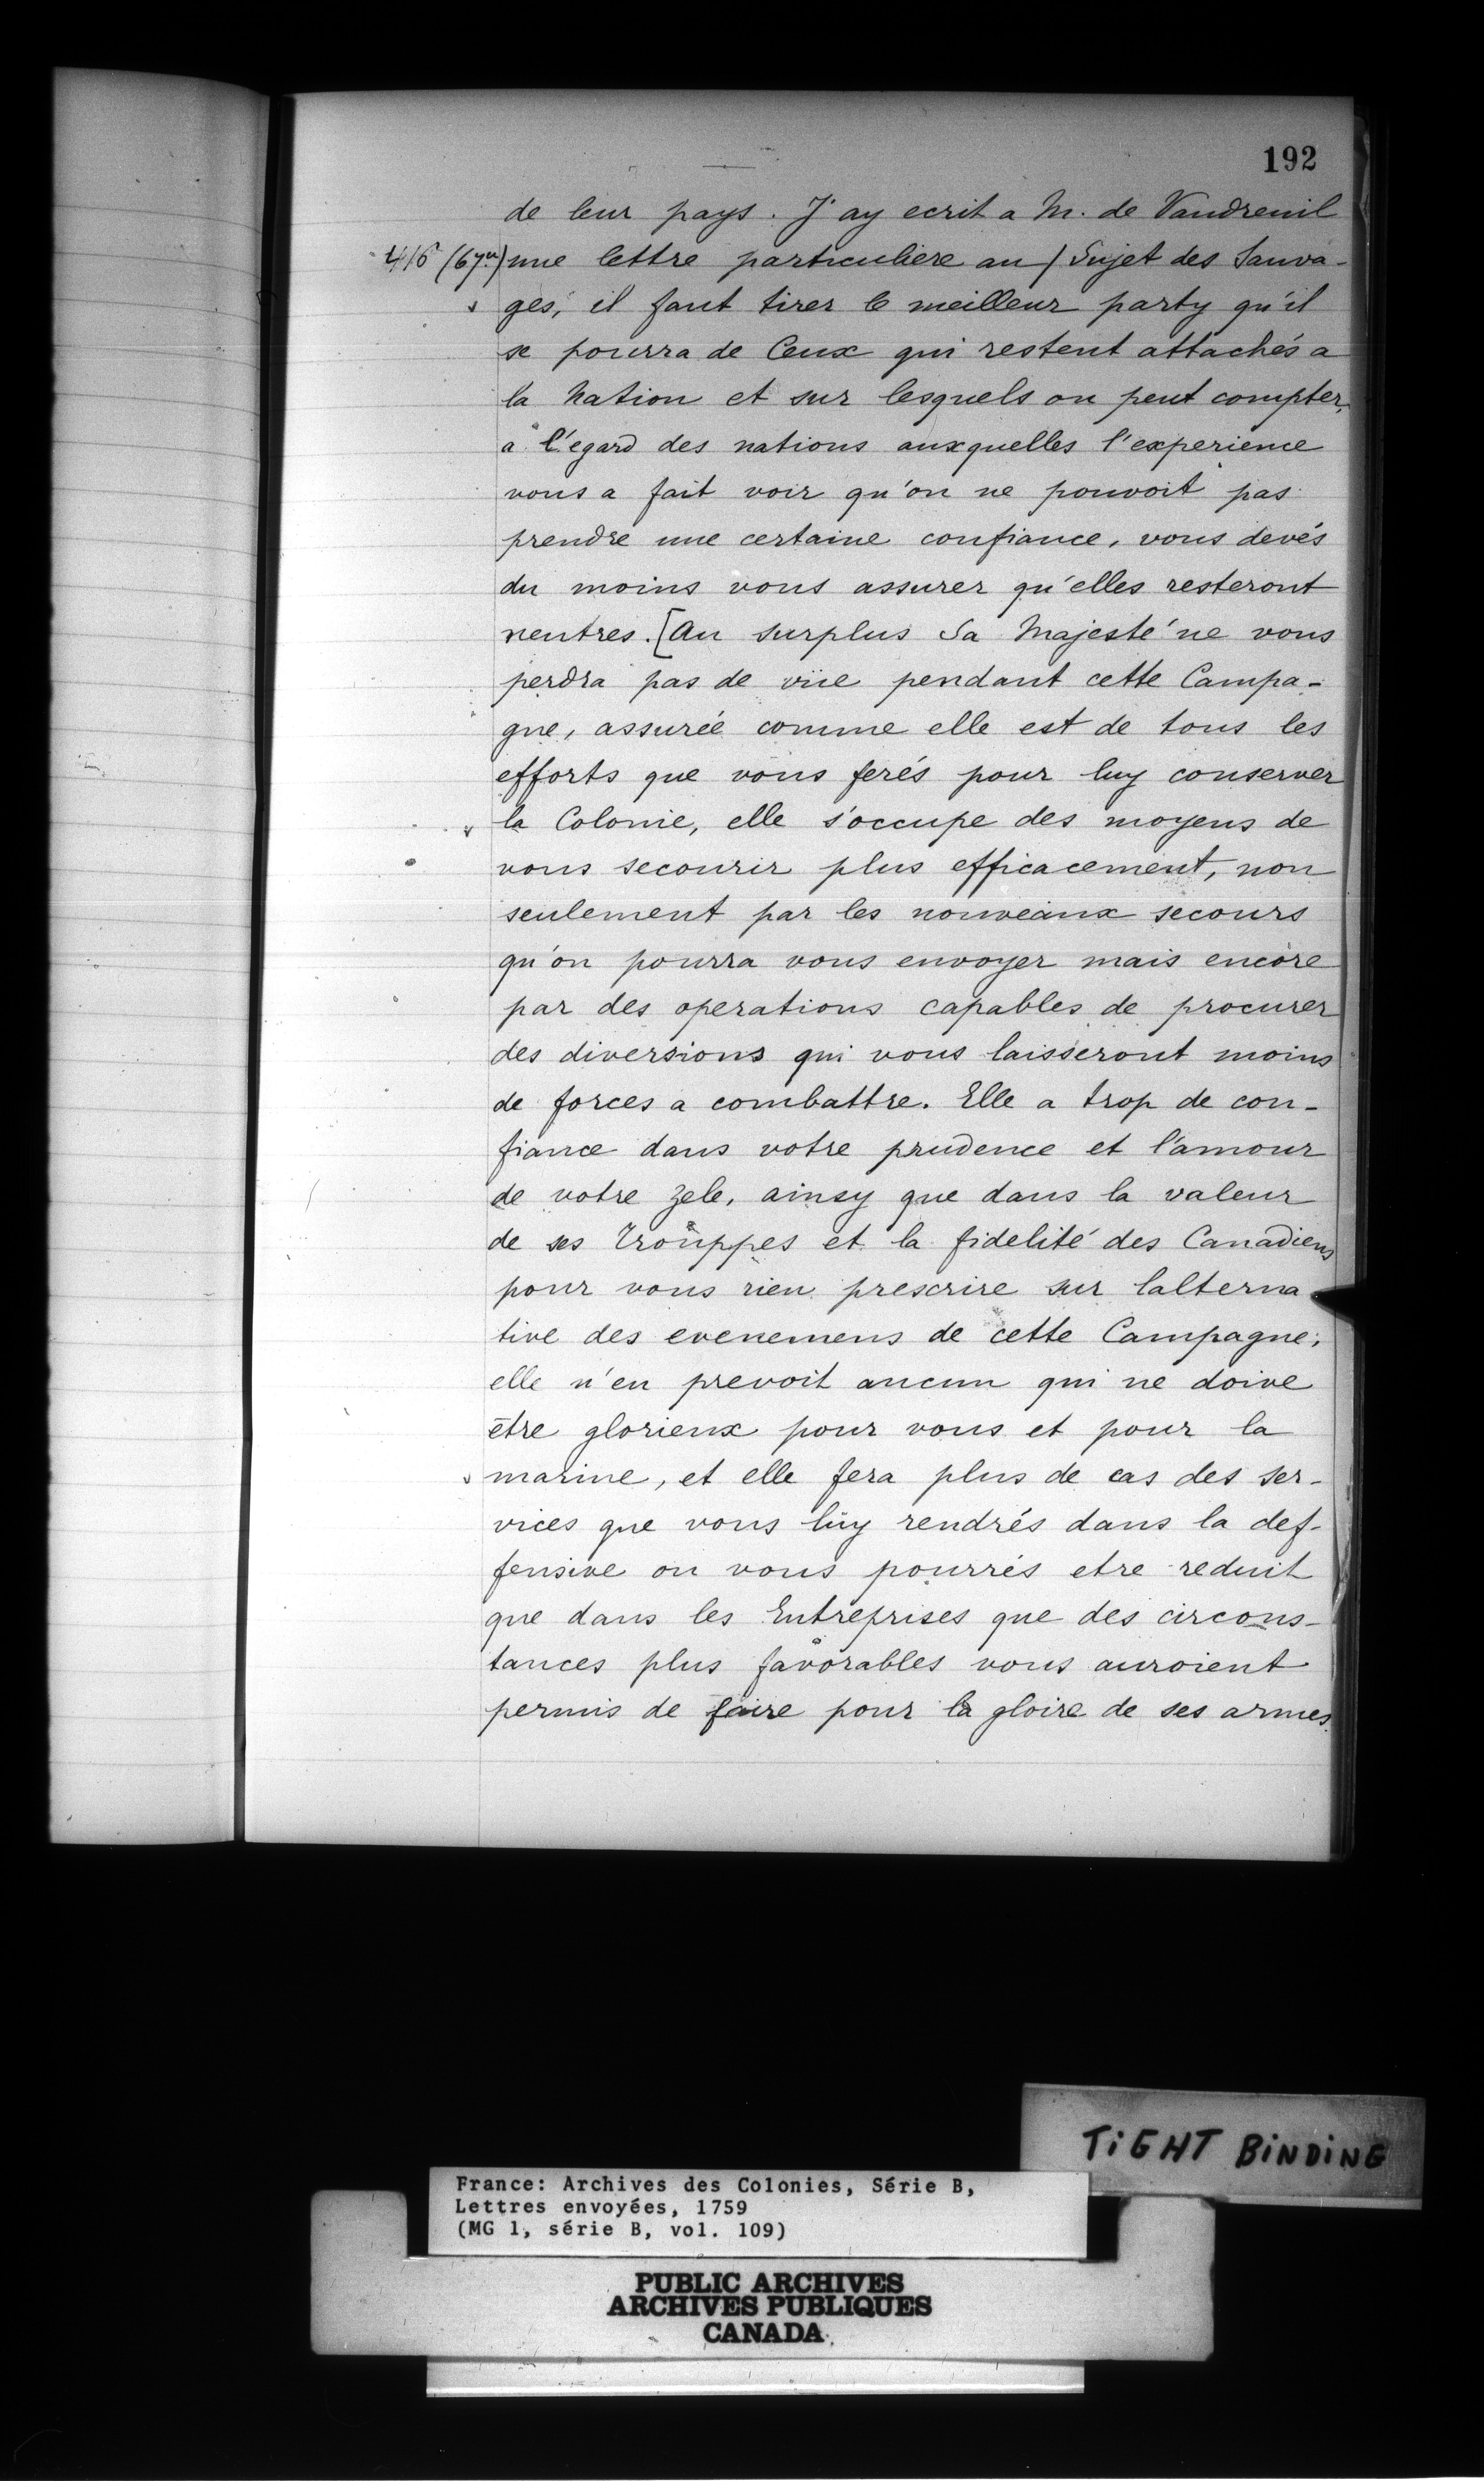 192
de leur pays. J'ay ecrit a M. de Vaudreuil
416 (67vo) une lettre particuliere au / Sujet des Sauva-
ges, il faut tirer le meilleur party qu'il
se pourra de Ceux qui restent attachés a
la Nation et sur lesquels on peut compter,
a l'egard des nations auxquelles l'experience
vous a fait voir qu'on ne pouvoit pas
prendre une certaine confiance, vous devés
du moins vous assurer qu'elles resteront
neutres. [Au surplus Sa Majesté ne vous
perdra pas de vüe pendant cette Campa-
gne, assurée comme elle est de tous les
efforts que vous ferés pour luy conserver
la Colonie, elle s'occupe des moyens de
vous secourir plus efficacement, non
seulement par les nouveaux secours
qu'on pourra vous envoyer mais encore
par des operations capables de procurer
des diversions qui vous laisseront moins
de forces a combattre. Elle a trop de con-
fiance dans votre prudence et l'amour
de votre zele, ainsy que dans la valeur
de ses Trouppes et la fidelité des Canadiens
pour vous rien prescrire sur lalterna
tive des evenemens de cette Campagne,
elle n'en prevoit aucun qui ne doive
etre glorieux pour vous et pour la
marine, et elle fera plus de cas des ser-
vices que vous luy rendrés dans la def-
fensive ou vous pourrés etre reduit
que dans les Entreprises que des circons-
tances plus favorables vous auroient
permis de faire pour la gloire de ses armes.
TiGHT BiNDiNG
France: Archives des Colonies, Série B,
Lettres envoyées, 1759
(MG 1, série B, vol. 109)
PUBLIC ARCHIVES
ARCHIVES PUBLIQUES
CANADA